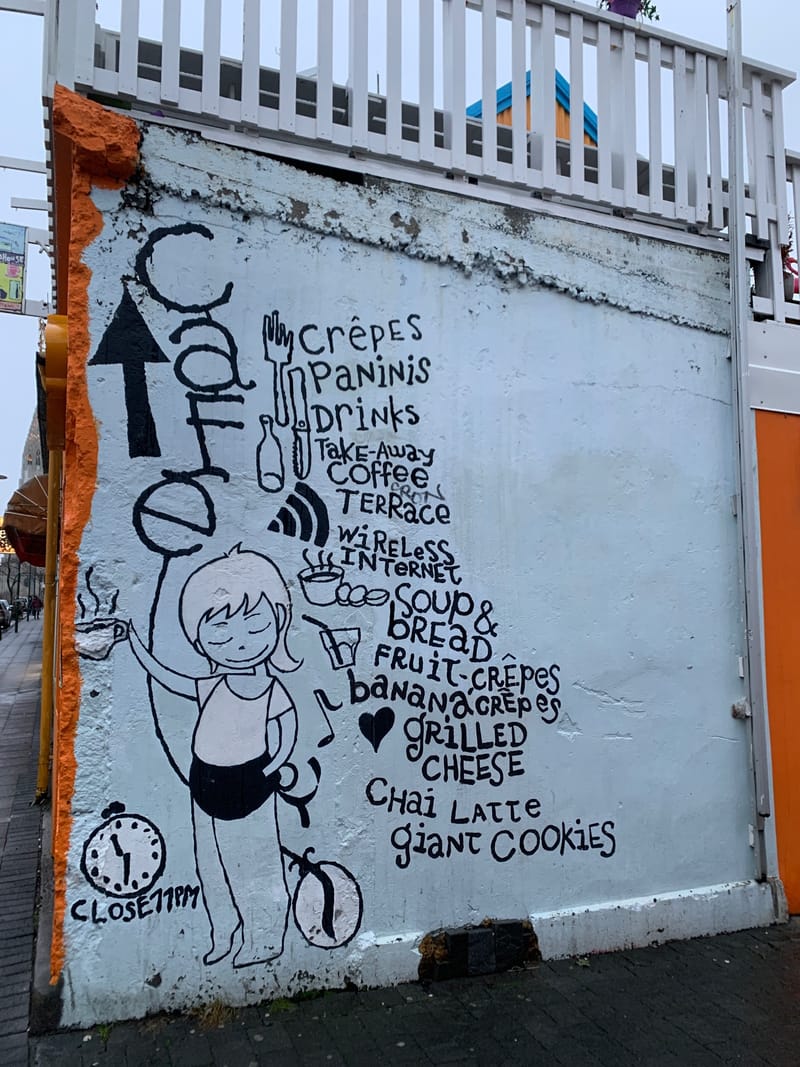 CaFe
CRÊPES
PANiNiS
DrinkS
TaKE-AWay
COFFee
TERRace
WiRELeSS
INTeRNET
SOUP &
bREAD
FRUiT-CRÊPES
bANANA CRÊPES
gRiLLED
CHEESE
CHai LATTe
giANT COOKiES
CLOSE 11PM